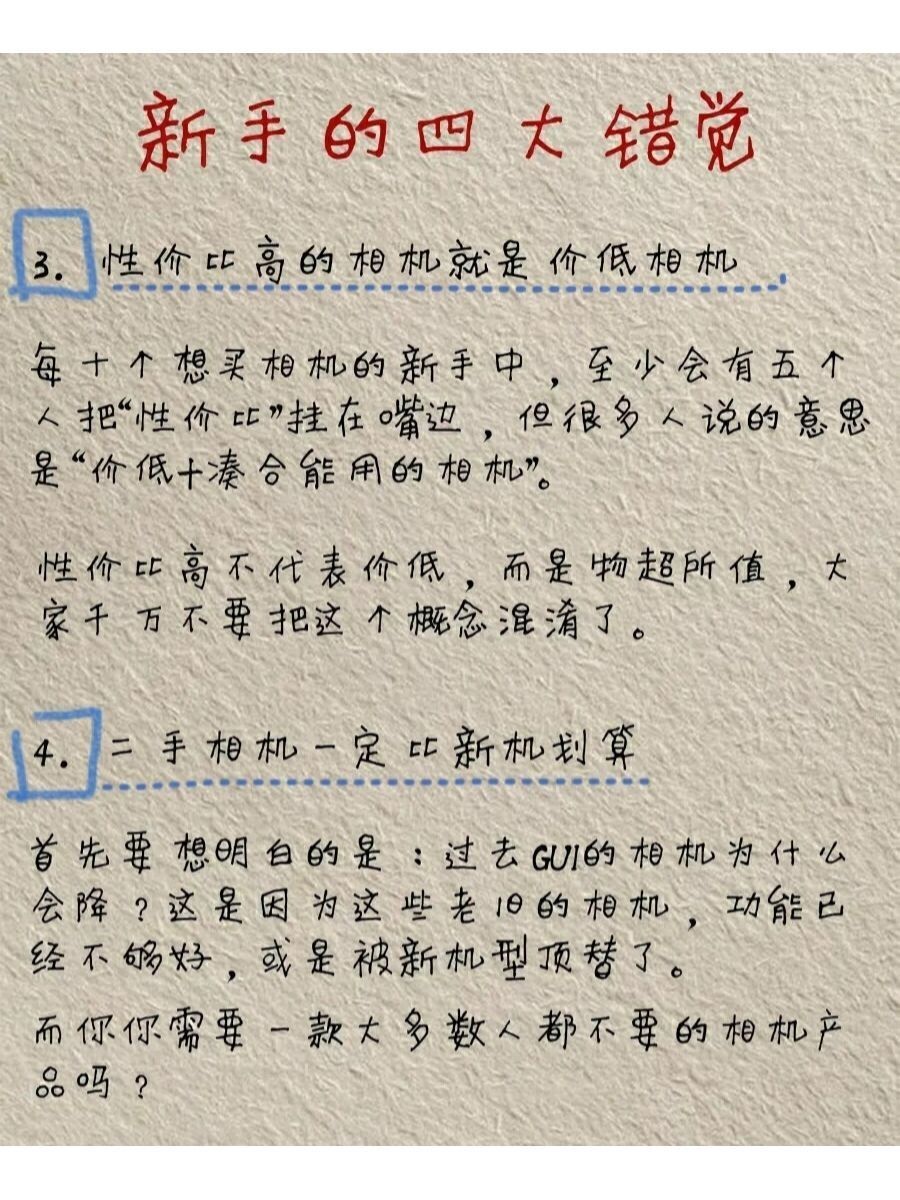 新手的四大错觉
3. 性价比高的相机就是价低相机
每十个想买相机的新手中，至少会有五个
人把“性价比”挂在嘴边，但很多人说的意思
是“价低+凑合能用的相机”。
性价比高不代表价低，而是物超所值，大
家千万不要把这个概念混淆了。
4. 二手相机一定比新机划算
首先要想明白的是：过去GUI的相机为什么
会降？这是因为这些老旧的相机，功能已
经不够好，或是被新机型顶替了。
而你你需要一款大多数人都不要的相机产
品吗？